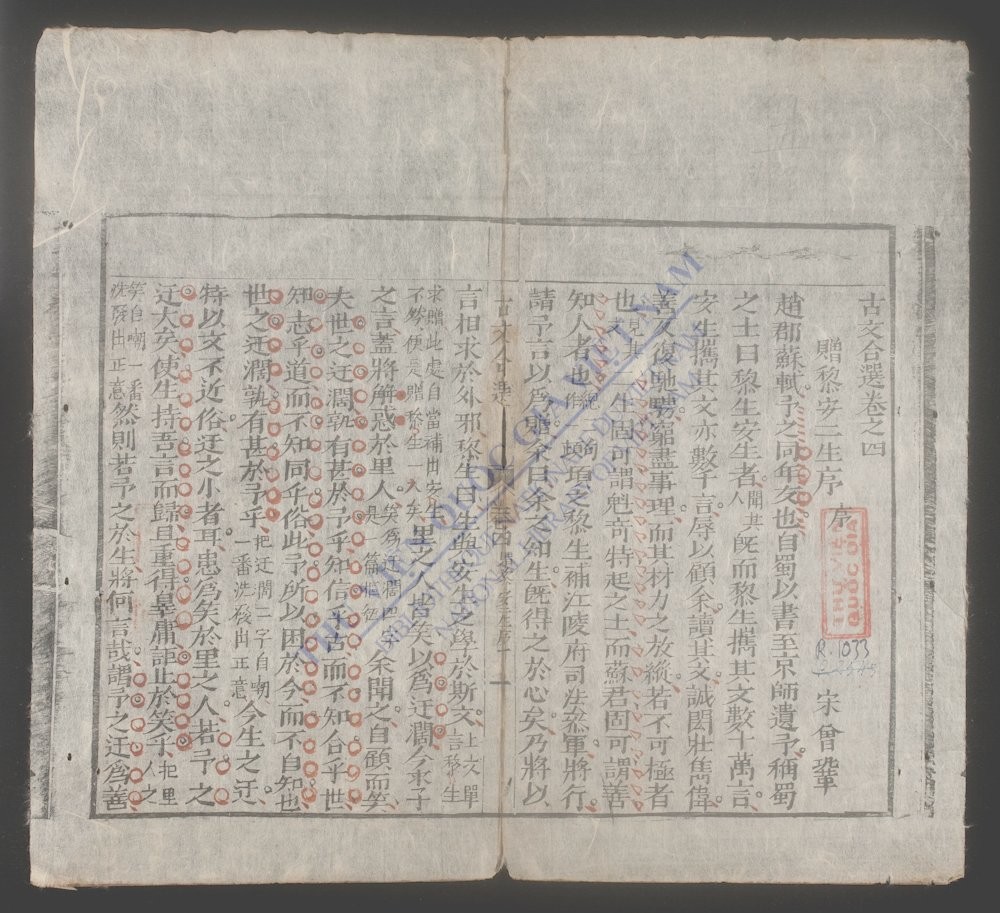 古文合選卷之四
贈黎安二生序 序 宋曾鞏
趙郡蘇軾予之同年友也自蜀以書至京師遺予稱蜀
之士曰黎生安生者既而黎生攜其文數十萬言
安生攜其文亦數千言辱以顧余讀其文誠閎壯雋偉
善反復馳騁窮盡事理而其材力之放縱若不可極者
也二生固可謂魁奇特起之士而蘇君固可謂善
知人者也頃之黎生補江陵府司法參軍將行
請予言以為贈余曰余之知生既得之於心矣乃將以
古文合選 卷之四
言相求於外邪黎生曰生與安生之學於斯文上文單言黎生
求贈此處自當補出安生不然便是贈黎生一人矣里之人皆笑以為迂闊今求子
之言蓋將解惑於里人余聞之自顧而笑
夫世之迂闊孰有甚於予乎知信乎古而不知合乎世
知志乎道而不知同乎俗此予所以困於今而不自知也
世之迂闊孰有甚於予乎把迂闊二字自嘲一番洗發出正意今生之迂
特以文不近俗迂之小者耳患為笑於里之人若予之
迂大矣使生持吾言而歸且重得罪庸詎止於笑乎把里人之
笑自嘲一番洗發出正意然則若予之於生將何言哉謂予之迂為善
THƯ VIỆN QUỐC GIA
R.1033
THƯ VIỆN QUỐC GIA VIỆT NAM
BIBLIOTHÈQUE NATIONALE DU VIETNAM
NATIONAL LIBRARY OF VIETNAM